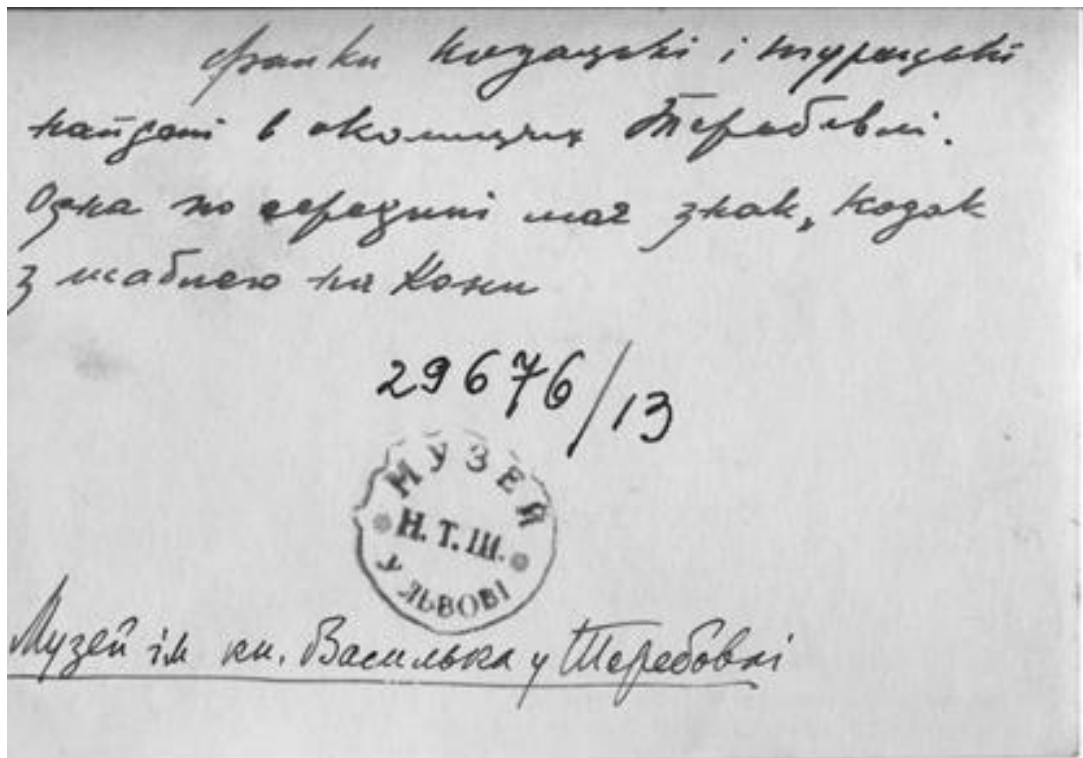 файки козацькі і турецькі
найдені в околицях Теребовлі.
Одна по середині має знак „козак
з шаблею на Кони
29676/13
МУЗЕЙ
Н. Т. Ш.
У ЛЬВОВІ
Музей ім кн. Василька у Теребовлі